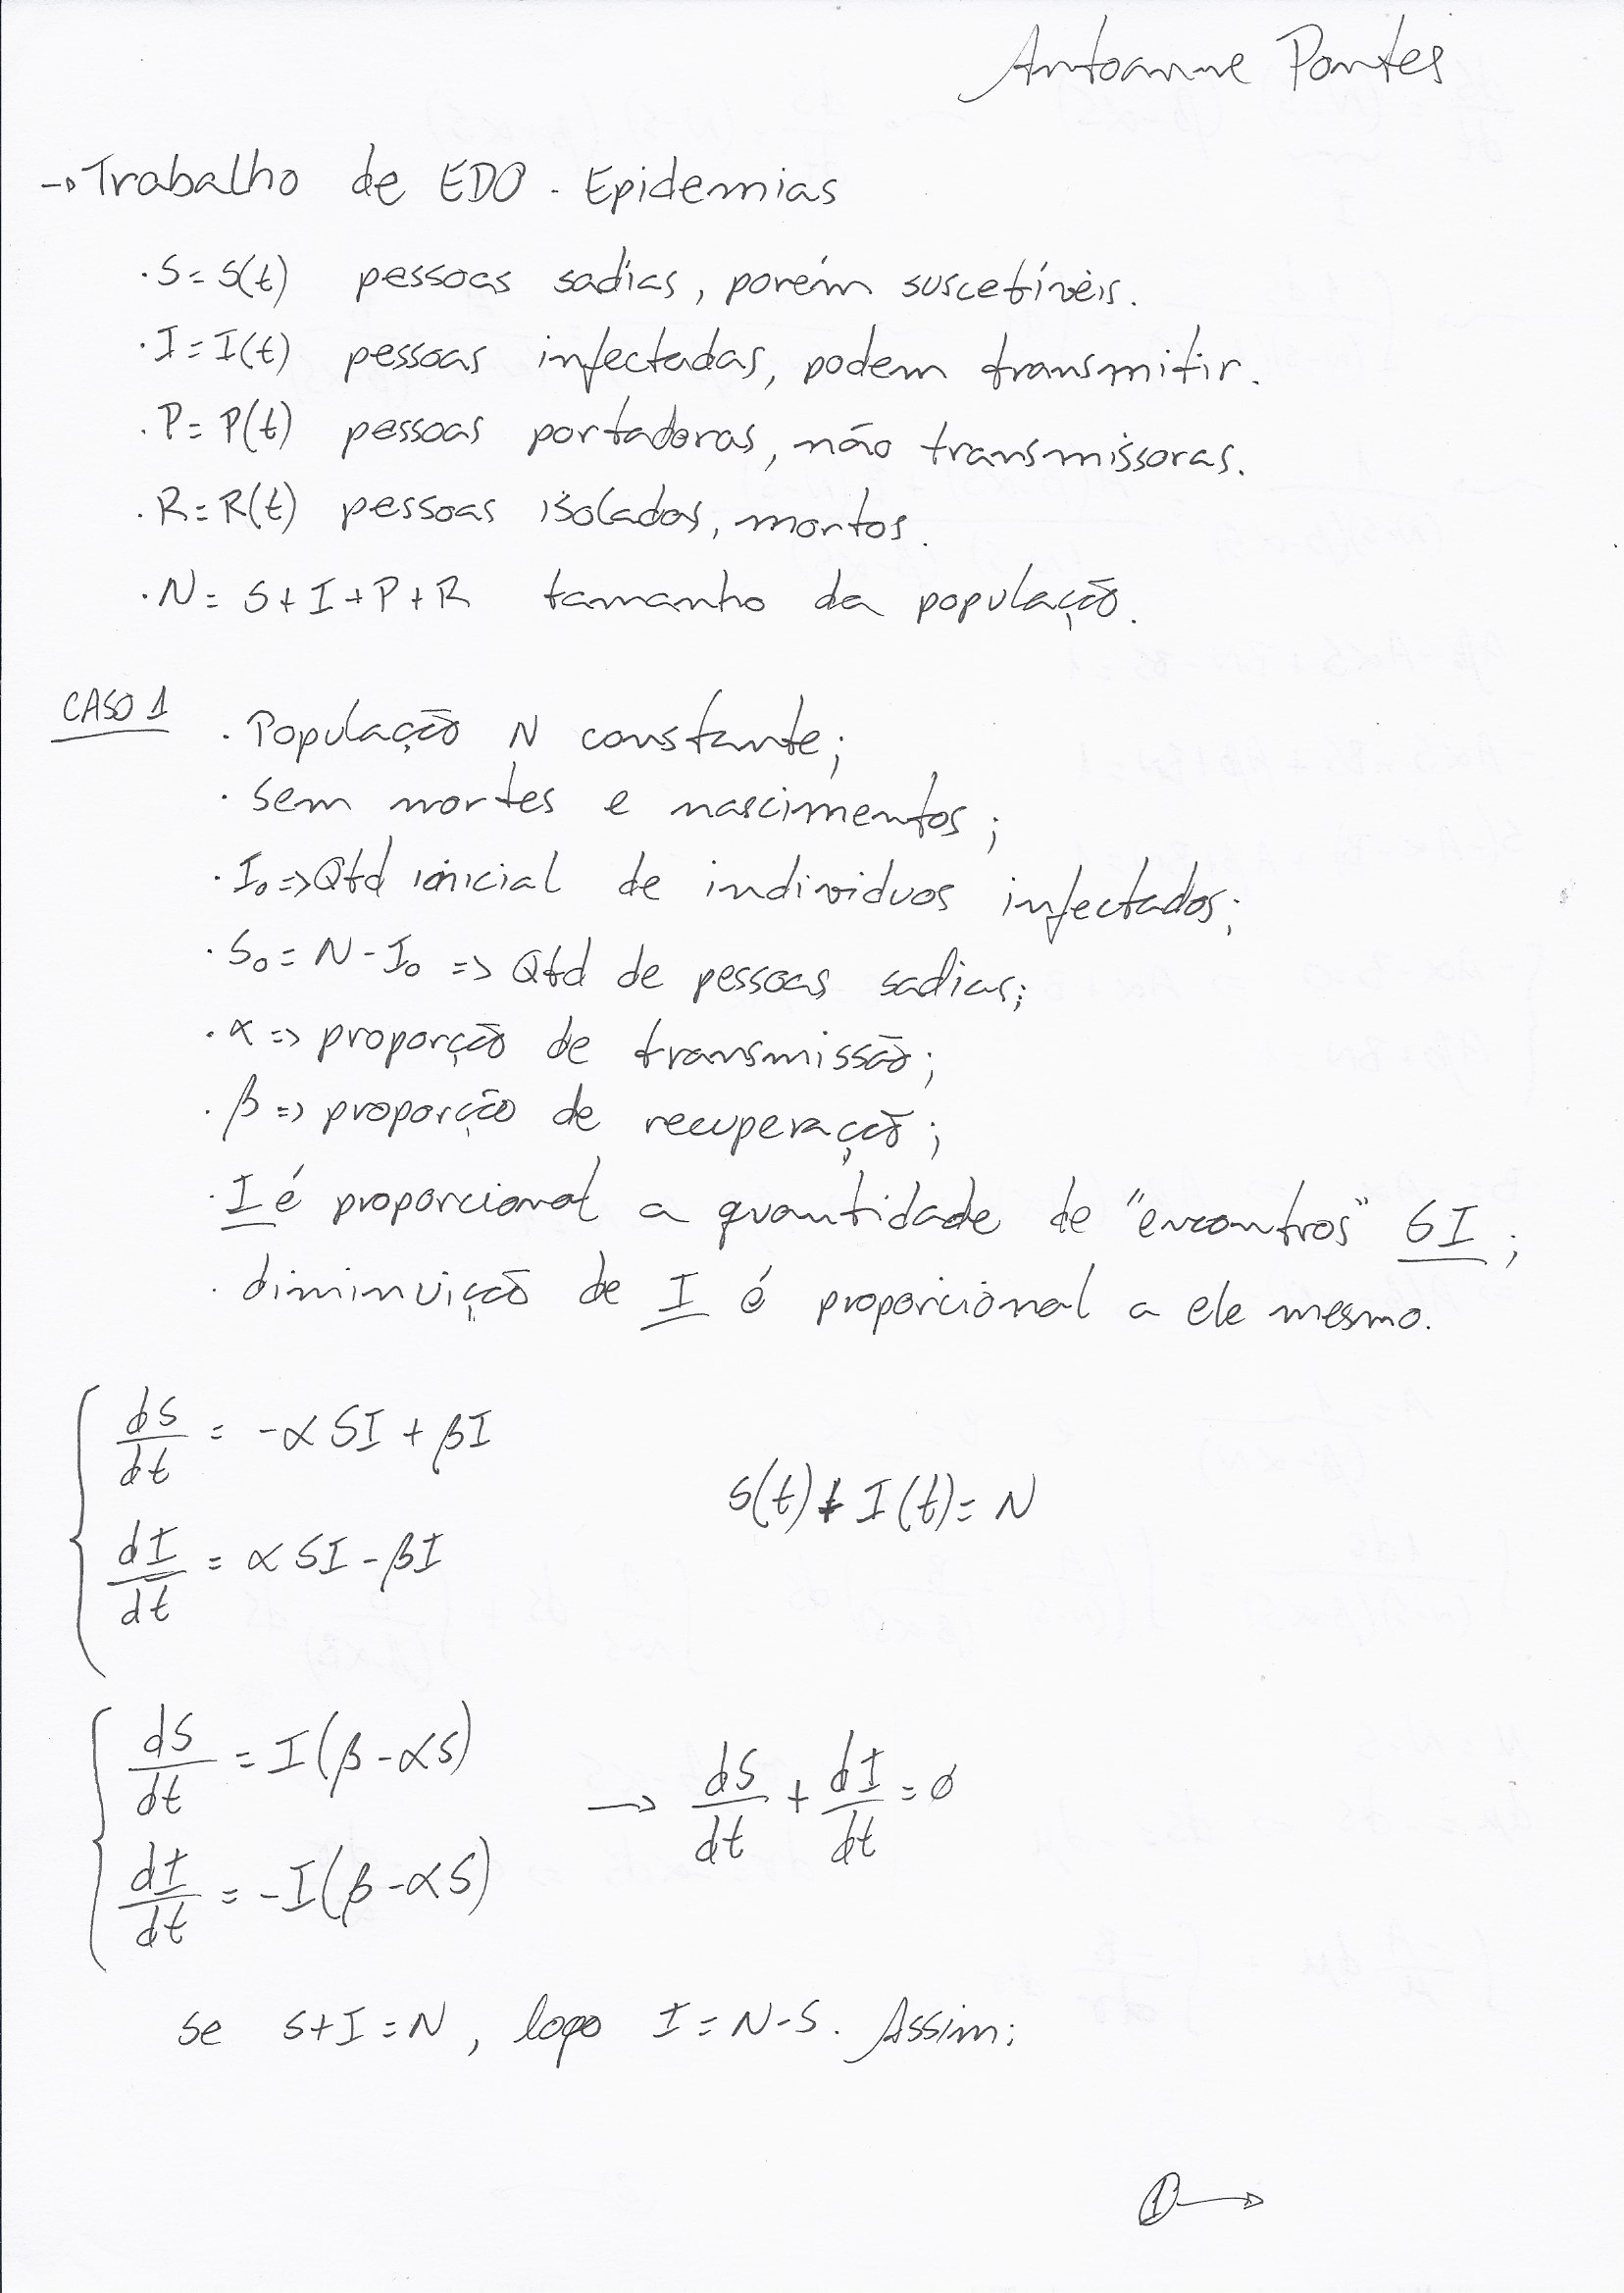 Antoanne Pontes
→ Trabalho de EDO - Epidemias
· S = S(t) pessoas sadias, porém suscetíveis.
· I = I(t) pessoas infectadas, podem transmitir.
· P = P(t) pessoas portadoras, não transmissoras.
· R = R(t) pessoas isolados, mortos.
· N = S + I + P + R tamanho da população.
CASO 1
· População N constante;
· Sem mortes e nascimentos;
· I₀ => Qtd inicial de individuos infectados;
· S₀ = N - I₀ => Qtd de pessoas sadias;
· α => proporção de transmissão;
· β => proporção de recuperação;
· I é proporcional a quantidade de "encontros" SI;
· diminuição de I é proporcional a ele mesmo.
dS/dt = -αSI + βI
S(t) + I(t) = N
dI/dt = αSI - βI
dS/dt = I(β - αS)
→ dS/dt + dI/dt = 0
dI/dt = -I(β - αS)
se S + I = N, logo I = N - S. Assim:
1 →